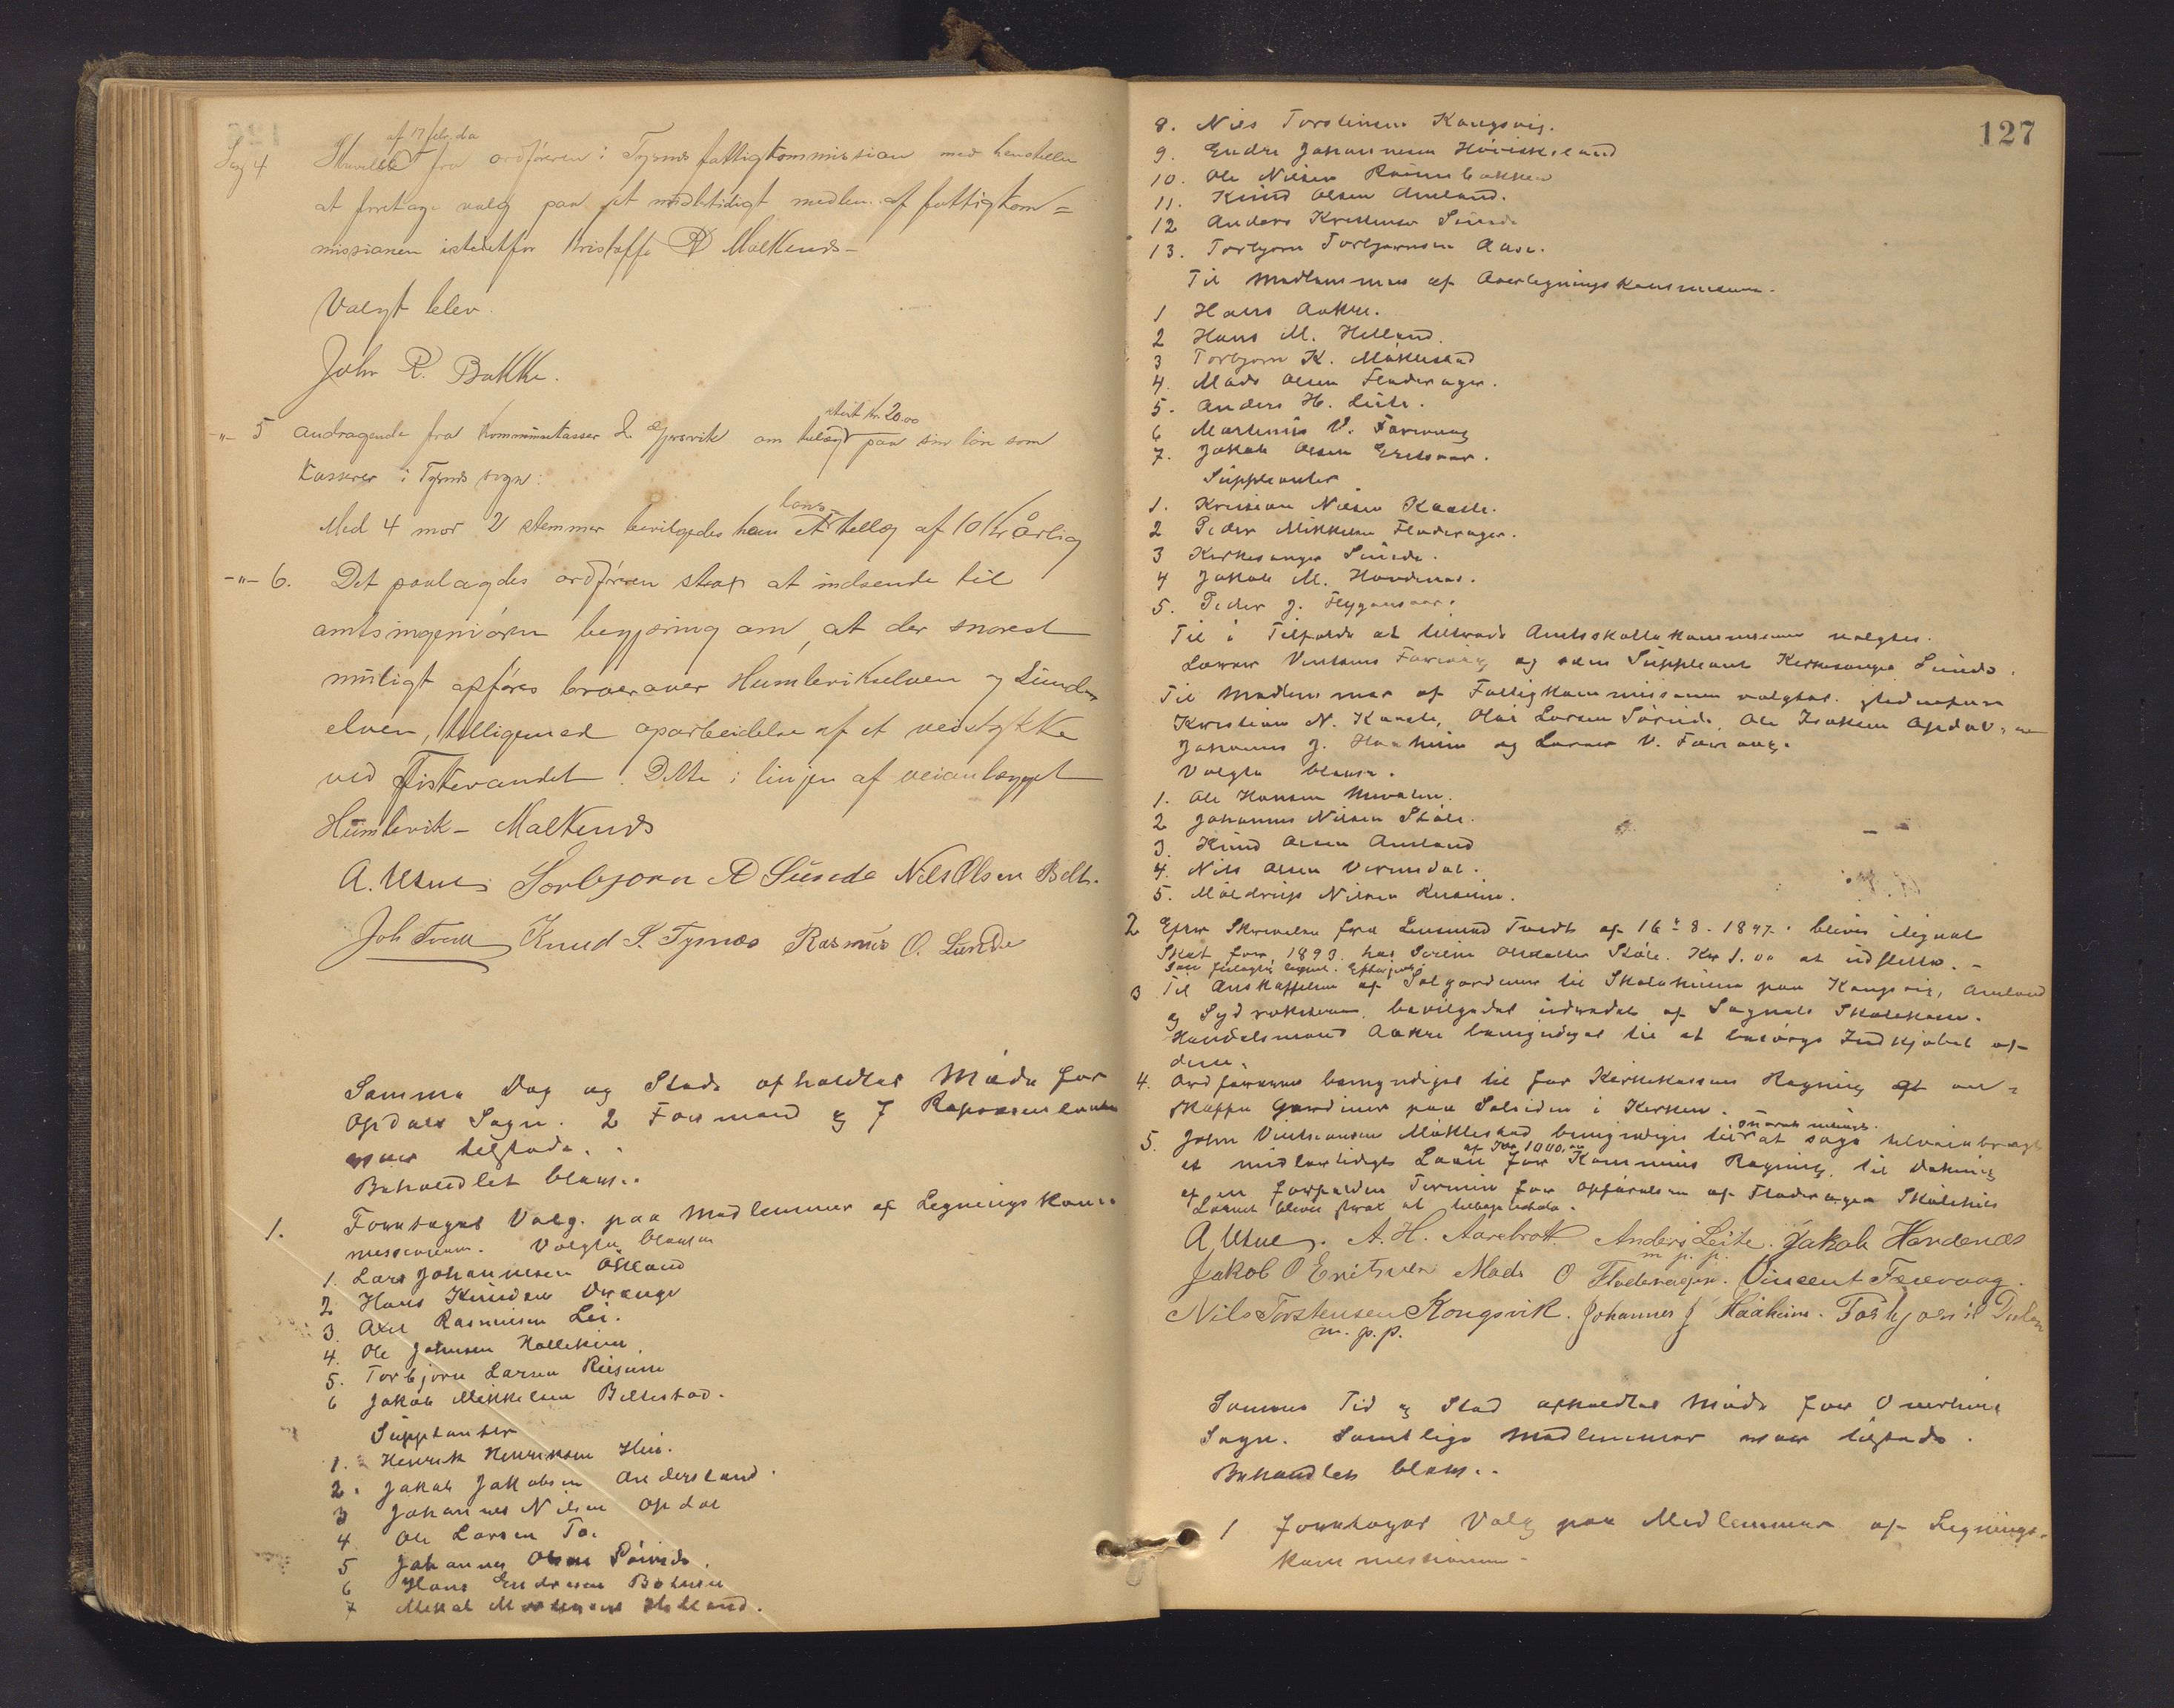 Sag 4 Skrivelse af 17 febr. da fra ordføreren i Tysnes fattigkommission med henstillen
at foretage valg paa et midlertidigt medlem af fattigkom=
missionen istedetfor Kristoffer R Malkenes-
Valgt blev.
John R. Bakke.
-"- 5 andragende fra Kommunekasser Gjersvik om tillæg stort kr. 20.00 paa sin løn som
kasserer i Tysnes sogn:
Med 4 mod 2 stemmer bevilgedes ham et løns tillæg af 10 Kr årlig
-"- 6. Det paalagdes ordføreren strax at indsende til
amtsingeniøren begjæring om, at der snarest
muligt opføres broer over Humlevikselven og Sunde
elven, tilligemed oparbeidelse af et veistykke
ved Fistevandet. Dette i linjen af veianlægget
Humlevik - Malkenes
A. Utne Torbjørn A Sunde Nils Olsen Belt.
Joh Tvedt Knud S. Tysnes Rasmus O. Sunde
Samme Dag og Stade afholdtes Møde for
Opdals Sogn. 2 Formænd og 7 Repræsentanter
var tilstede.
Behandlet blev..
1. Foretages Valg paa Medlemmer af Legningskom=
missionen. Valgte blev
1. Lars Johannesen Økland
2 Hans Knudsen Drange
3. Axel Rasmusen Lei.
4. Ole Johnsen Hallekim
5. Torbjørn Larsen Reisum
6 Jakob Mikkelsen Bellestad.
Supplanter
1. Henrik Henriksen Hius.
2. Jakob Jakobsen Andersland.
3 Johannes Nilsen Opdal
4 Ole Larsen To.
5 Johannes Olsen Søivide.
6 Hans Endresen
7 Mikal Helland.
127
8. Nils Torstensen Kongsvig.
9. Endre Johannesen
10. Ole Nilsen
11. Knud Olsen Amland.
12 Anders Kristensen Sunde
13. Torbjørn Torbjørnsen Aase.
Til Medlemmer af Overlegningskommissionen.
1 Hans Aakre.
2 Hans M. Helland.
3 Torbjørn K. Møklestad
4. Mads Olsen Fladerager.
5. Anders H. Leite.
6 Martinus V. Færevaag
7. Jakob Olsen Eritsver.
Suppleanter
1. Kristian Nilsen Kaasle.
2 Peder Mikkelsen Fladerager.
3 Kirkesanger Sunde.
4 Jakob M. Hovdenes.
5. Peder J. Flygansvær.
Til i Tilfælde at tiltræde Amtsskattekommissionen valgtes.
Lærer Vintsens Færevaag og som Suppleant Kirkesanger Sunde.
Til Medlemmer af Fattigkommissionen valgtes. istedenfor
Kristian N. Kaasle, Olai Larsen Søivide, Ole Isaksen Opdal,
Johannes J. Haaheim og Lærer V. Færevaag.
Valgte blev.
1. Ole Hansen
2 Johannes Nilsen Støle.
3. Knud Olsen Amland
4. Nils Olsen Vermedal.
5. Nilsen
2 Efter Skrivelse fra Lensmand Tvedt af 16 - 8 - 1897. blives ilignet
Skat for 1893. hos Støle. Kr 1.00 at udslette. -
som feilagtig lignet. Eftergives.
3 Til Anskaffelse af Solgardiner til Skolehusene paa Kongsvig, Amland
og bevilgedes af Sognets Skolekasse.
Handelsmand Aakre bemyndiges til at besørge Indkjøbet af
dem.
4. Ordføreren bemyndiges til for Kirkekassens Regning at an=
skaffe Gardiner paa Solsiden i Kirken.
5. John Vintsensen Møklestad bemyndiges til snarest muligt at søge tilveiebragt
et midlertidigt Laan af Kr 1000,00 for Kommunens Regning til Dækning
af en forfalden Termin for Opførelsen af Fladeragers Skolehus
Laanet bliver strax at tilbagebetale.
A. Utne. A. H. Aarebrot. Anders Leite. Jakob Hovdenæs
m. p. p.
Jakob O Eritsver Mads O Fladerager. Vincent Færevaag.
Nils Torstensen Kongsvik. Johannes J Haaheim. Torbjørn
m. p. p.
Samme Tid og Stad afholdtes Møde for Onarheims
Sogn. Samtlige Medlemmer var tilstede.
Behandlet blev..
1 Foretages Valg paa Medlemmer af Legnings-
kommissionen -